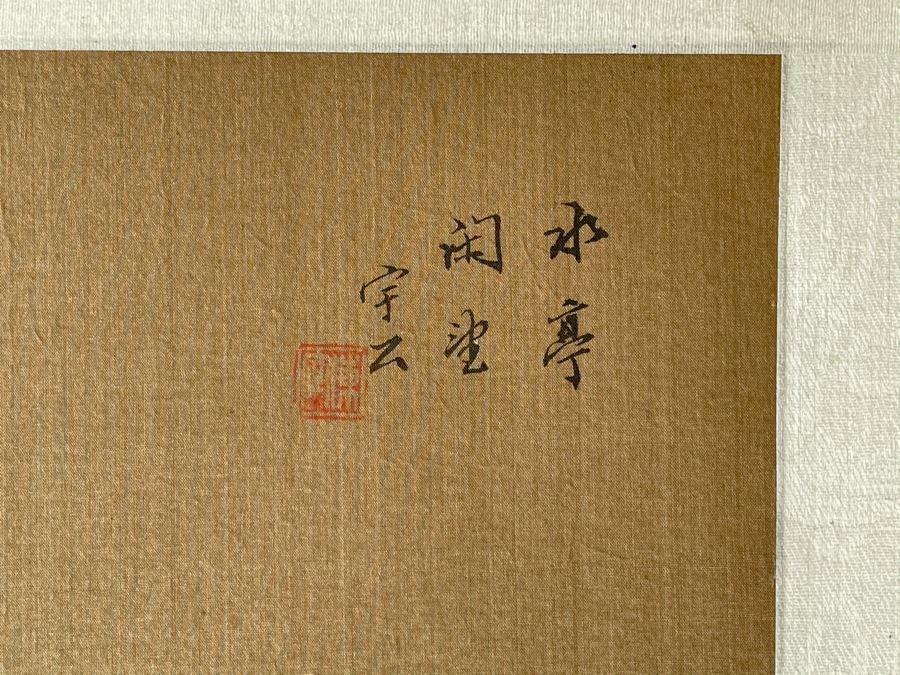 水亭
闲望
宇云